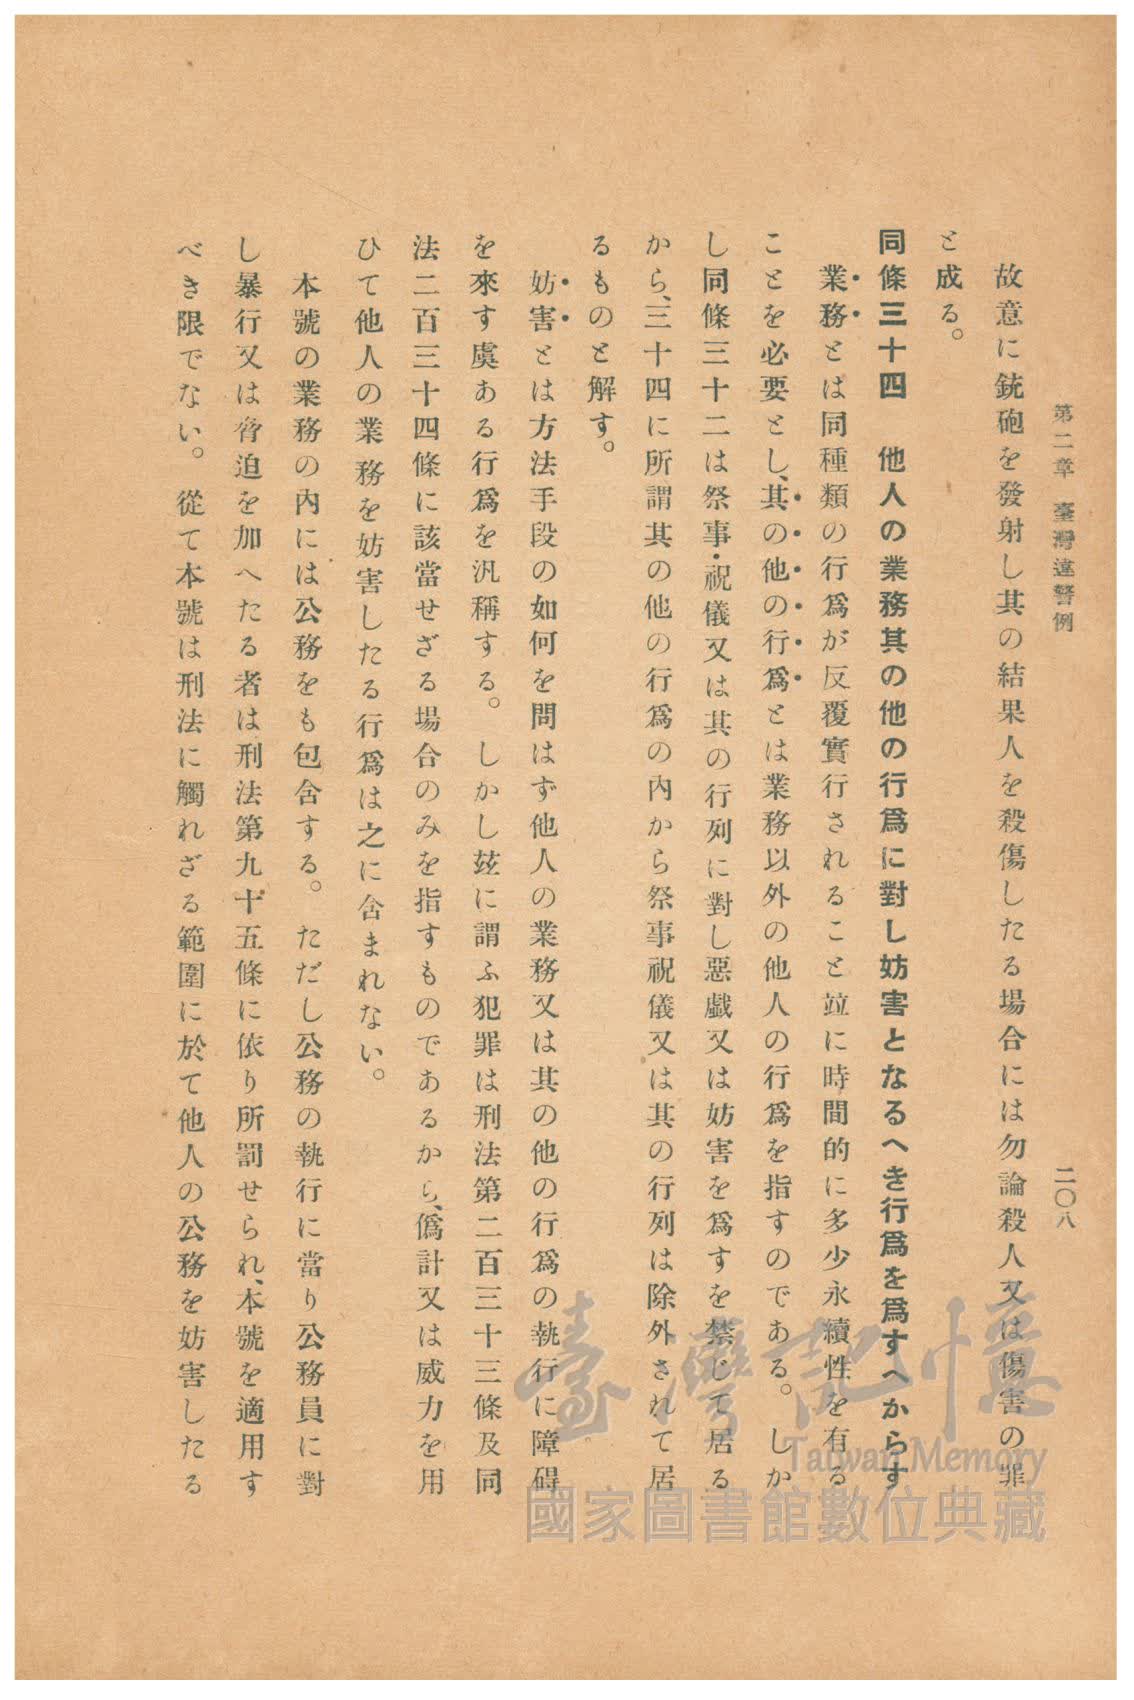 第二章　臺灣違警例　二〇八
故意に銃砲を發射し其の結果人を殺傷したる場合には勿論殺人又は傷害の罪
と成る。
同條三十四　他人の業務其の他の行爲に對し妨害となるへき行爲を爲すへからす
業務とは同種類の行爲が反覆實行されること竝に時間的に多少永續性を有る
ことを必要とし、其の他の行爲とは業務以外の他人の行爲を指すのである。しか
し同條三十二は祭事・祝儀又は其の行列に對し惡戲又は妨害を爲すを禁じて居る
から、三十四に所謂其の他の行爲の內から祭事祝儀又は其の行列は除外されて居
るものと解す。
妨害とは方法手段の如何を問はず他人の業務又は其の他の行爲の執行に障碍
を來す虞ある行爲を汎稱する。しかし玆に謂ふ犯罪は刑法第二百三十三條及同
法二百三十四條に該當せざる場合のみを指すものであるから、僞計又は威力を用
ひて他人の業務を妨害したる行爲は之に含まれない。
本號の業務の內には公務をも包含する。ただし公務の執行に當り公務員に對
し暴行又は脅迫を加へたる者は刑法第九十五條に依り所罰せられ、本號を適用す
べき限でない。從て本號は刑法に觸れざる範圍に於て他人の公務を妨害したる
臺灣記憶
Taiwan Memory
國家圖書館數位典藏